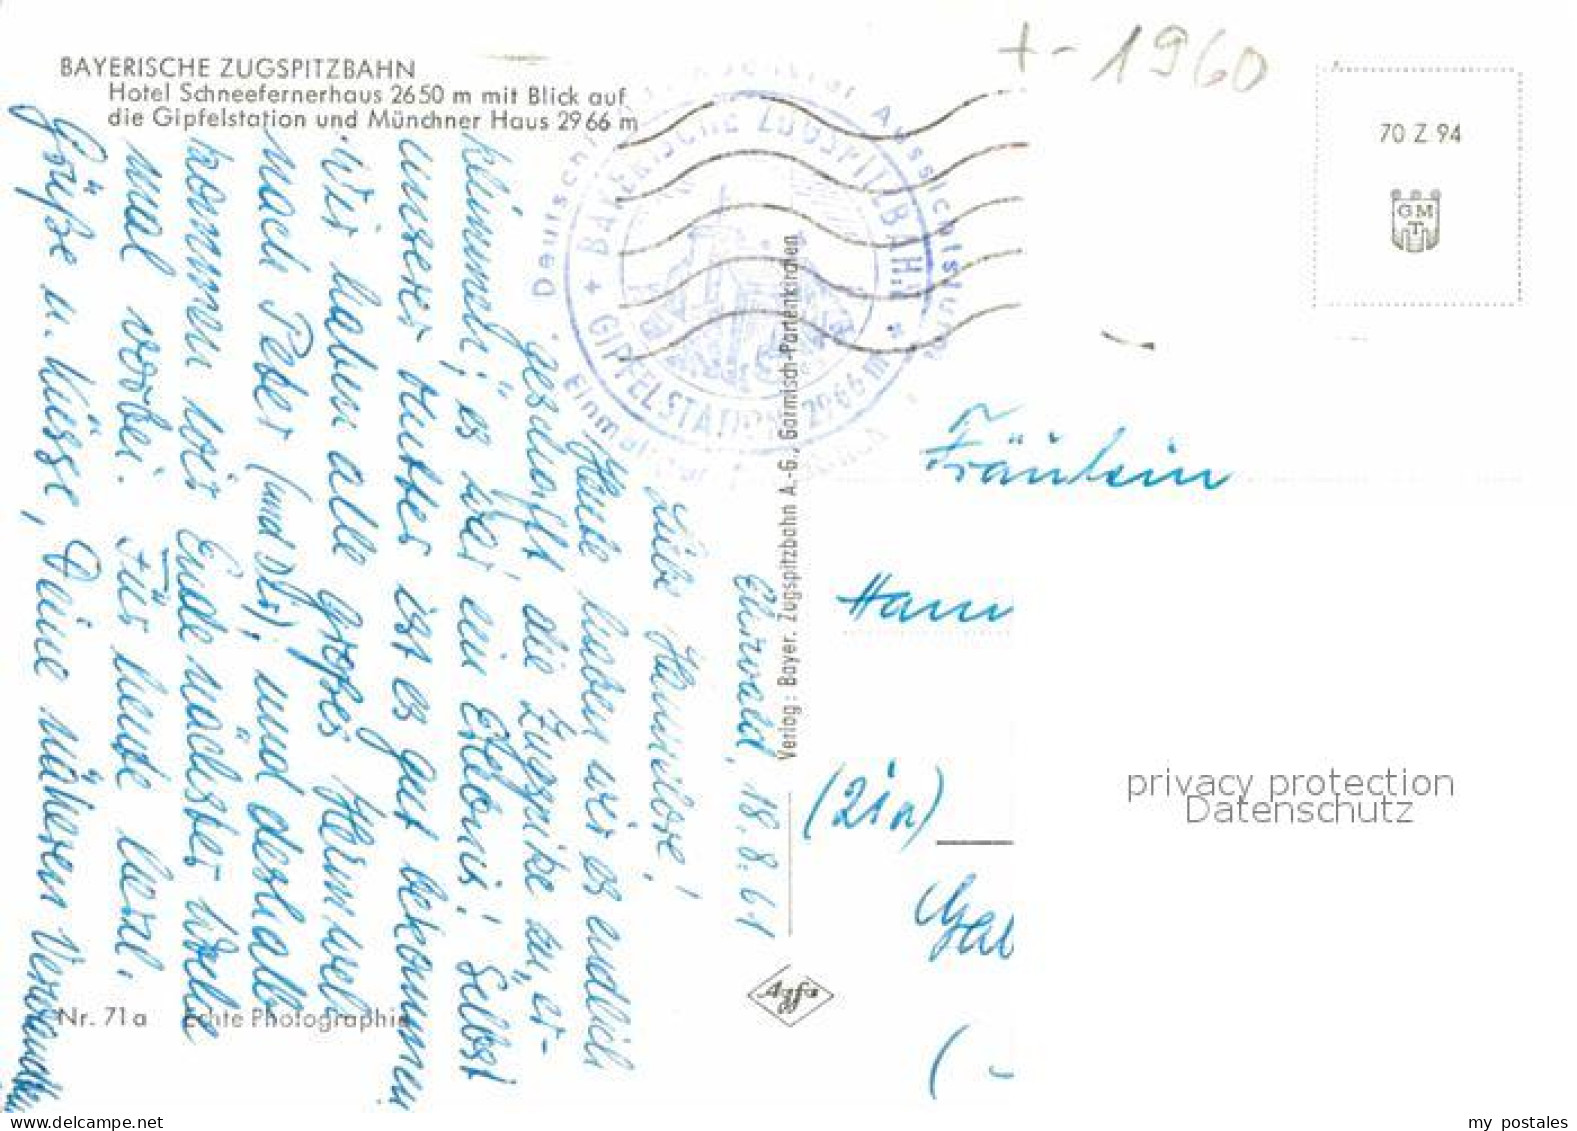 BAYERISCHE ZUGSPITZBAHN
Hotel Schneefernerhaus 2650 m mit Blick auf
die Gipfelstation und Münchner Haus 2966 m
+- 1960
70 Z 94
GMT
BAYERISCHE ZUGSPITZBAHN
+ GIPFELSTATION 2966 m
Deutsch
Aussichtsturm
Einmal
Ehrwald, 18.8.61
Liebe Hannelore!
Heute haben wir es endlich
geschafft, die Zugspitze zu er-
klimmen; es war ein Erlebnis! Selbst
unserer Mutter ist es gut bekommen
Wir haben alle großes Heimweh
nach Peter (und Dir), und deshalb
kommen wir Ende nächster Woche
mal vorbei. Für heute herzl.
Grüße u. Küsse, Deine näheren Verwandten
Verlag: Bayer. Zugspitzbahn A.-G., Garmisch-Partenkirchen
Fräulein
Hann
(21a)
Agfa
Nr. 71a Echte Photographie
privacy protection
Datenschutz
my postales